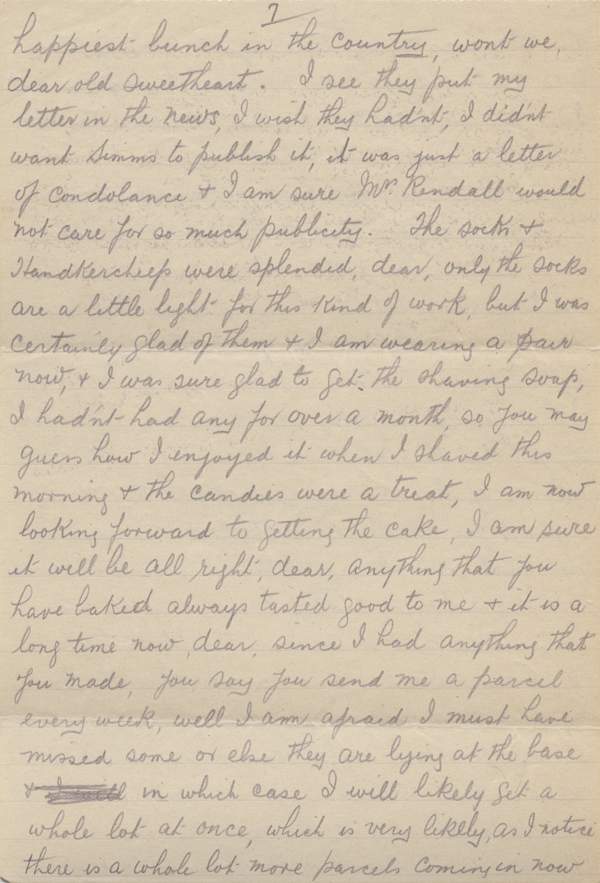 7
happiest bunch in the country, wont we,
dear old sweetheart. I see they put my
letter in the news, I wish they hadn't, I didn't
want Simms to publish it, it was just a letter
of condolance & I am sure Mrs Rendall would
not care for so much publicity. The socks &
Handkercheifs were splendid, dear, only the socks
are a little light for this kind of work, but I was
certainly glad of them & I am wearing a pair
now, & I was sure glad to get the shaving soap,
I hadn't had any for over a month, so you may
guess how I enjoyed it when I shaved this
morning & the candies were a treat, I am now
looking forward to getting the cake, I am sure
it will be all right, dear, anything that you
have baked always tasted good to me & it is a
long time now, dear, since I had anything that
you made, you say you send me a parcel
every week, well I am afraid I must have
missed some or else they are lying at the base
& in which case I will likely get a
whole lot at once, which is very likely, as I notice
there is a whole lot more parcels coming in now